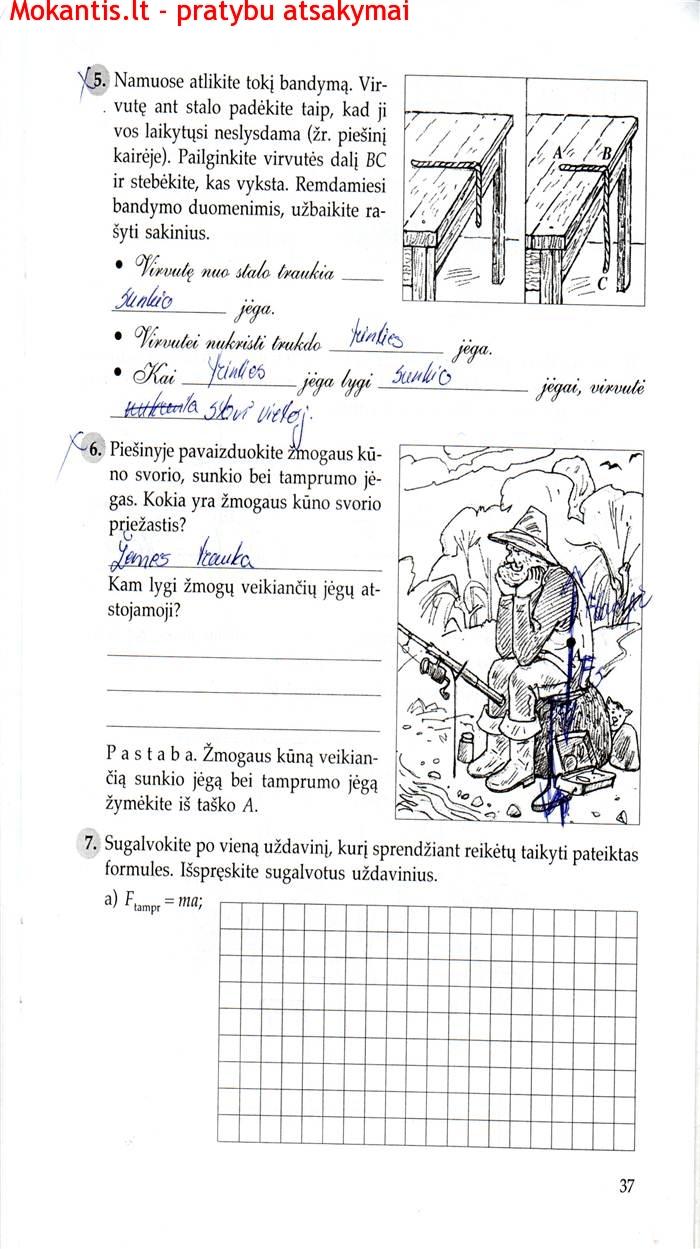 Mokantis.lt - pratybu atsakymai
5. Namuose atlikite tokį bandymą. Vir-
vutę ant stalo padėkite taip, kad ji
vos laikytųsi neslysdama (žr. piešinį
kairėje). Pailginkite virvutės dalį BC
ir stebėkite, kas vyksta. Remdamiesi
bandymo duomenimis, užbaikite ra-
šyti sakinius.
A B
C
• Virvutę nuo stalo traukia
sunkio jėga.
• Virvutei nukristi trukdo trinties jėga.
• Kai trinties jėga lygi sunkio jėgai, virvutė
stovi vietoj.
6. Piešinyje pavaizduokite žmogaus kū-
no svorio, sunkio bei tamprumo jė-
gas. Kokia yra žmogaus kūno svorio
priežastis?
Žemės trauka
Kam lygi žmogų veikiančių jėgų at-
stojamoji?
A
P a s t a b a. Žmogaus kūną veikian-
čią sunkio jėgą bei tamprumo jėgą
žymėkite iš taško A.
7. Sugalvokite po vieną uždavinį, kurį sprendžiant reikėtų taikyti pateiktas
formules. Išspręskite sugalvotus uždavinius.
a) Ftampr = ma;
37